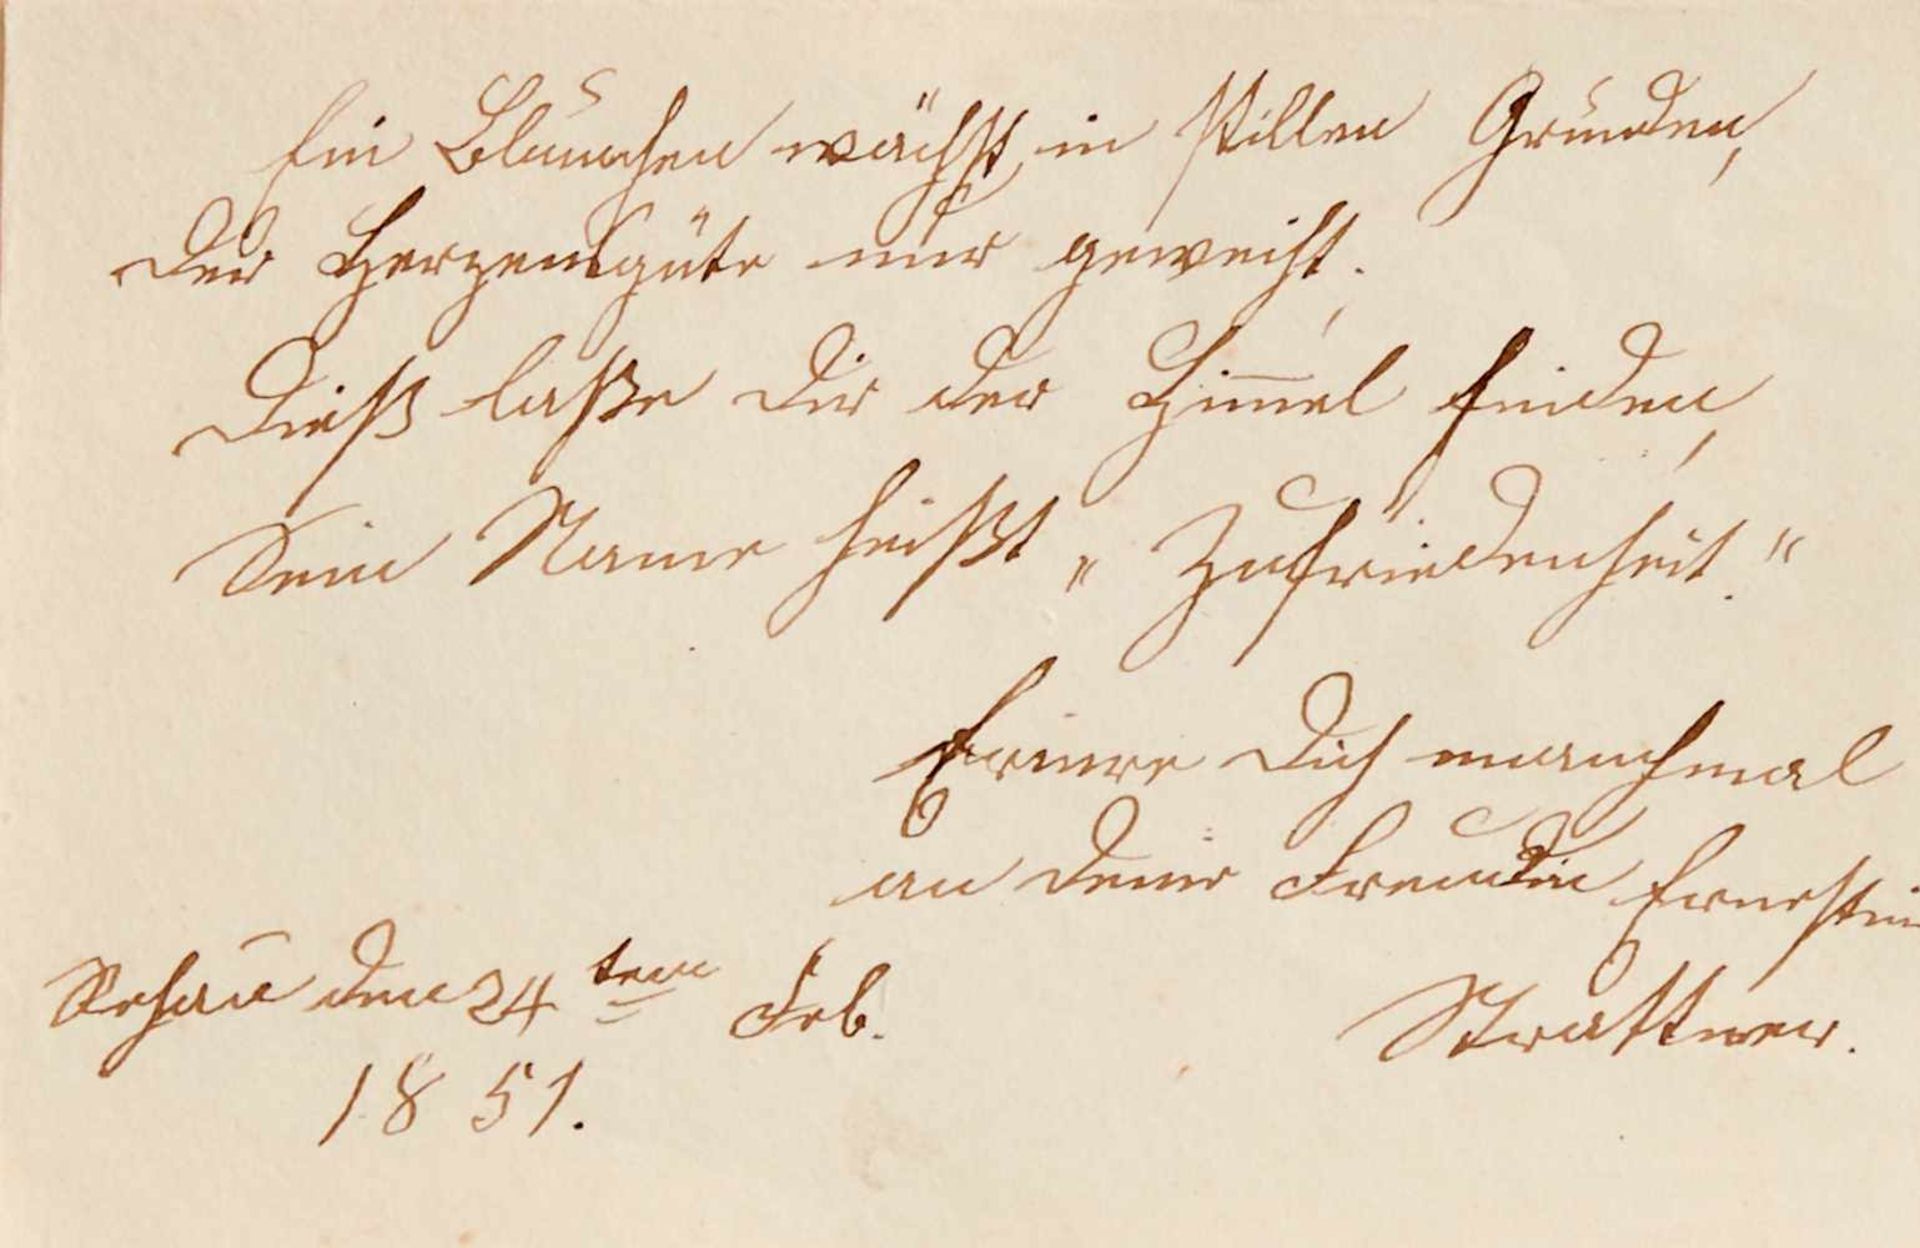 Ein Blümchen wächst in stillen Gründen,
Der Herzensgüte nur geweiht.
Dieß laße Dir der Him̅el finden,
Sein Name heißt „Zufriedenheit."
Erinre Dich manchmal
an Deine Freundin Ernestin
Rehau den 24ten Feb.
Strattner.
1851.